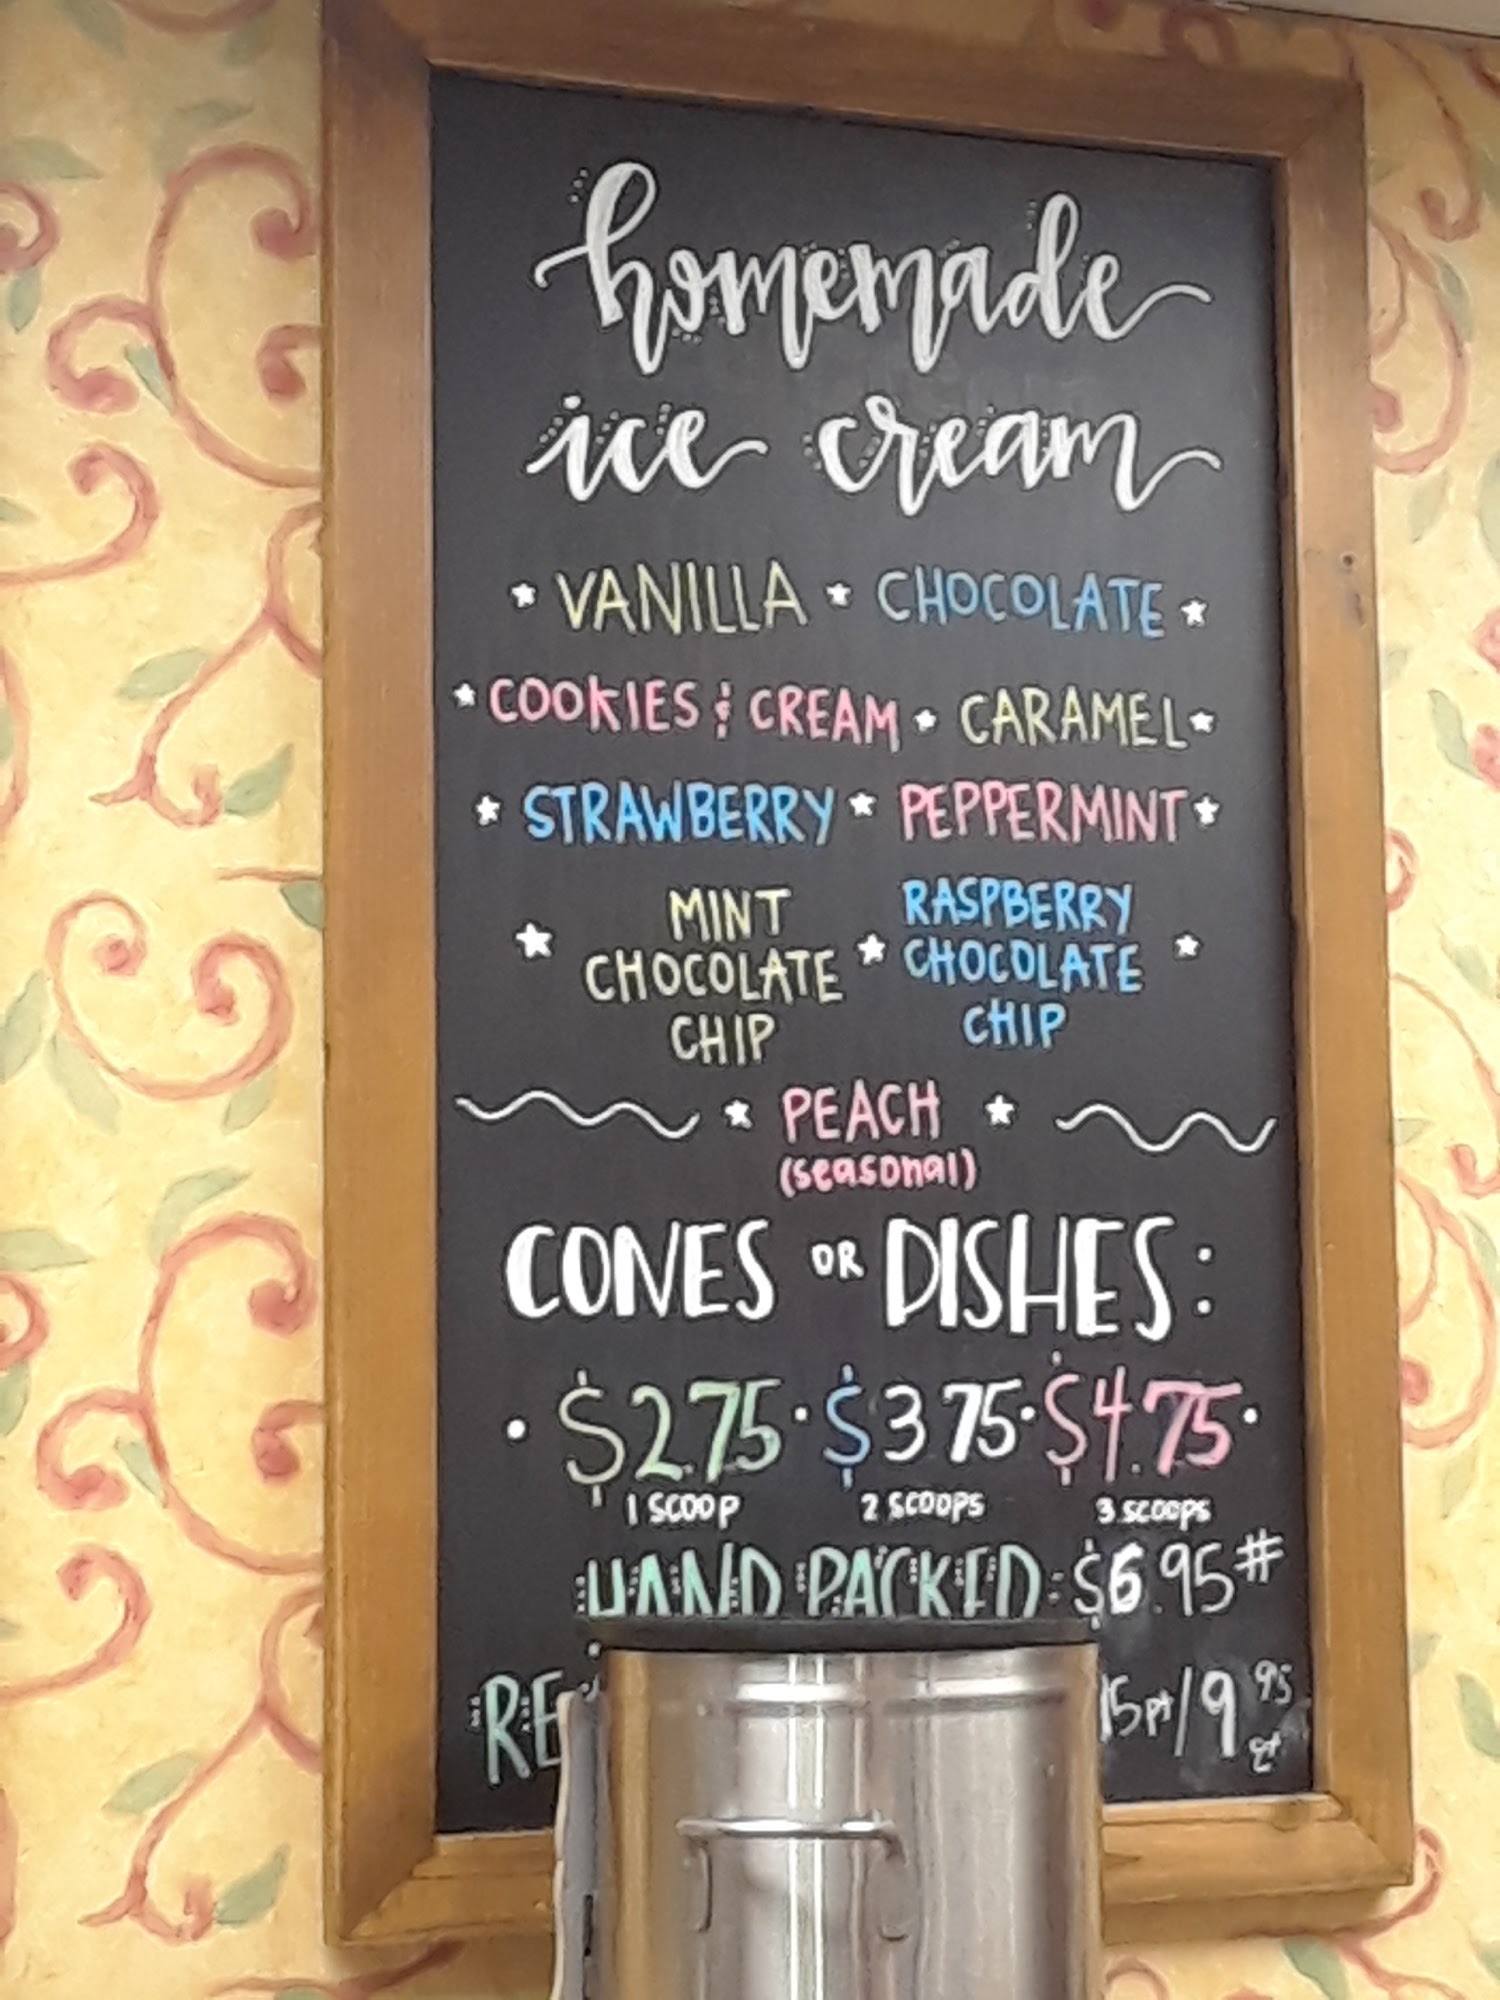 homemade
ice cream
VANILLA CHOCOLATE
COOKIES & CREAM CARAMEL
STRAWBERRY PEPPERMINT
MINT
CHOCOLATE
CHIP
RASPBERRY
CHOCOLATE
CHIP
PEACH
(seasonal)
CONES OR DISHES:
$2.75 $3.75 $4.75
1 SCOOP 2 SCOOPS 3 SCOOPS
HAND PACKED: $6.95#
15pt/9 95